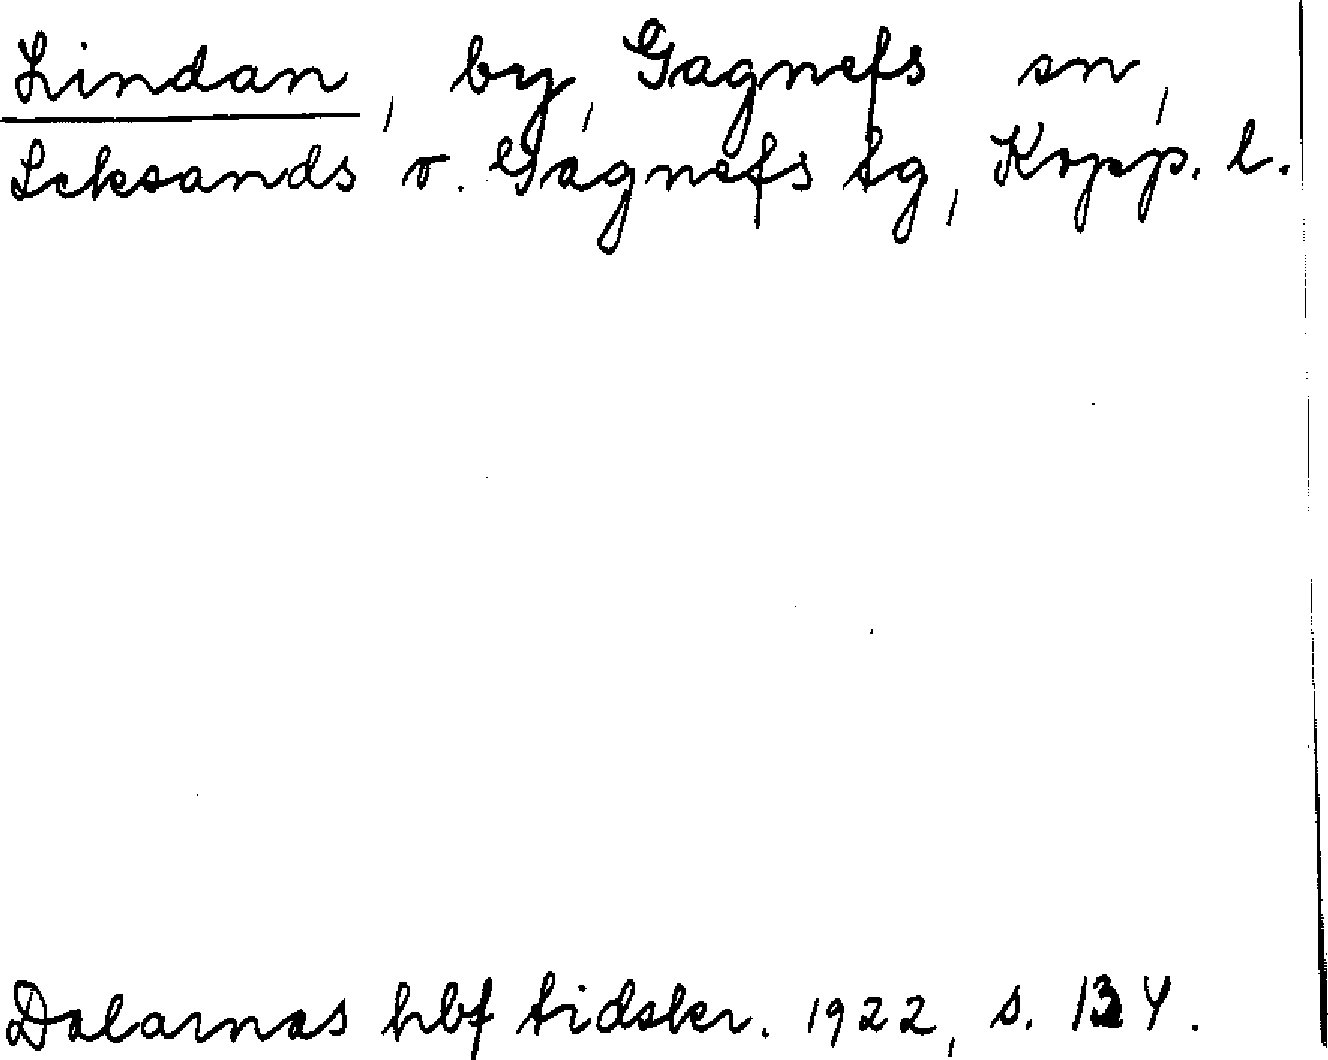 Lindan, by, Gagnefs sn,
Leksands o. Gagnefs tg, Kopp. l.
Dalarnas hbf tidskr. 1922, s. 134.